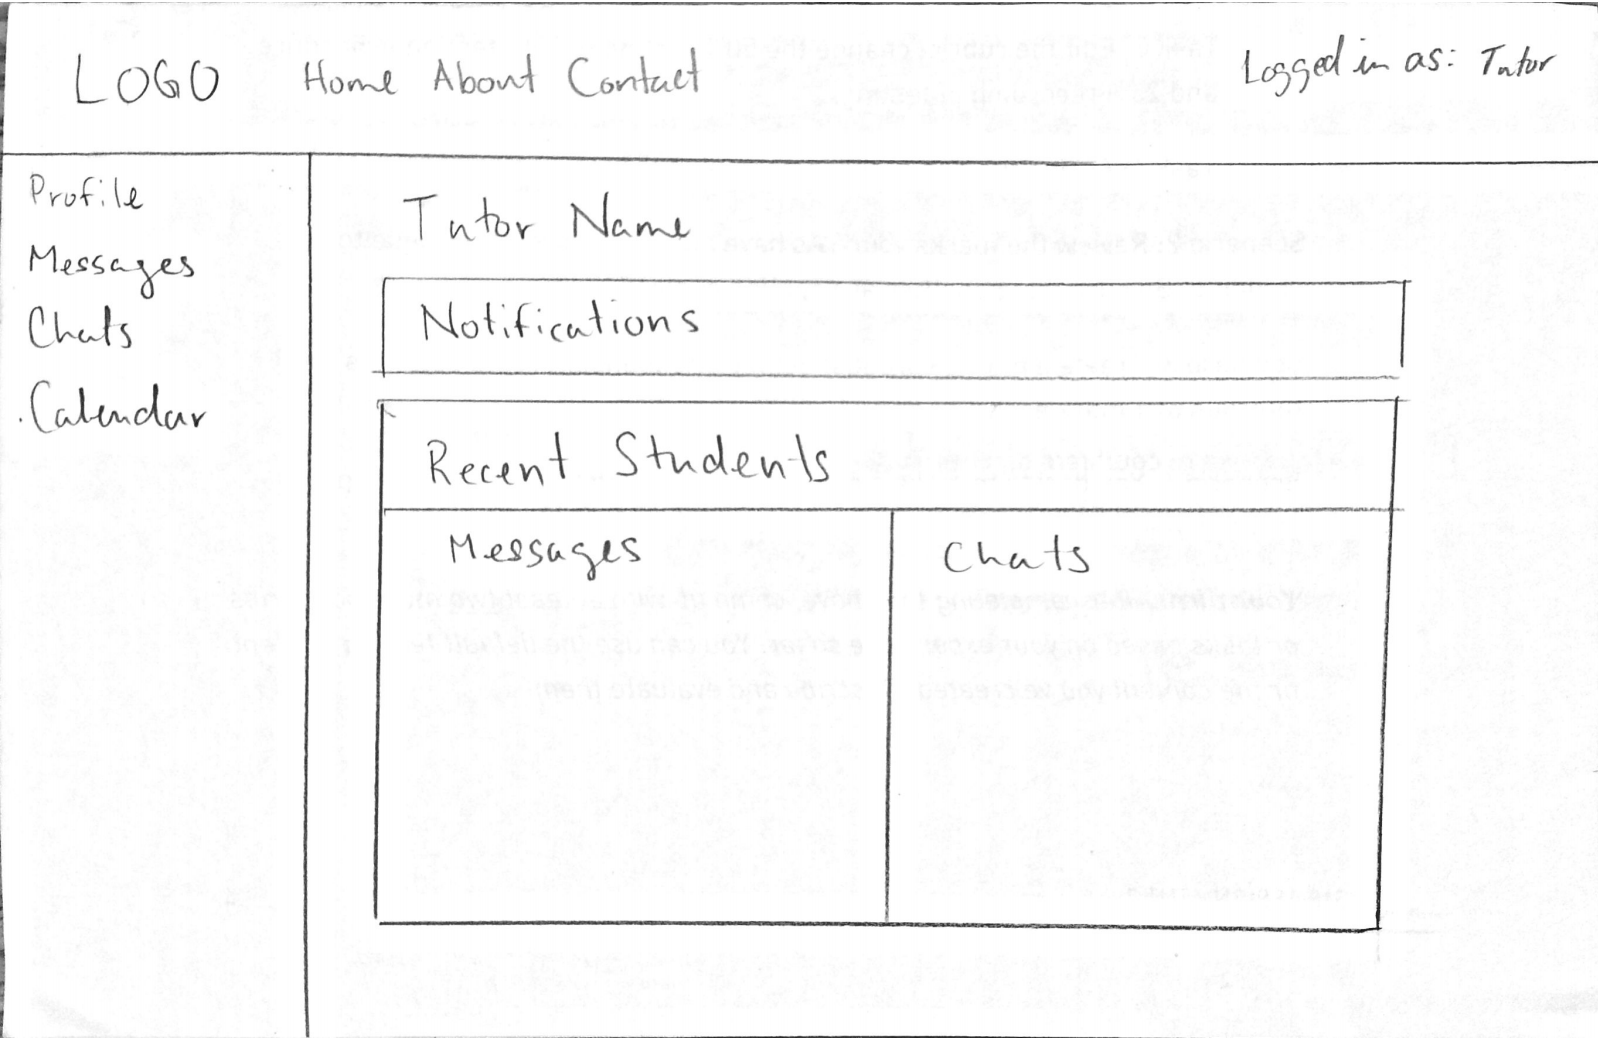 LOGO Home About Contact Logged in as: Tutor
Profile
Messages
Chats
Calendar
Tutor Name
Notifications
Recent Students
Messages Chats